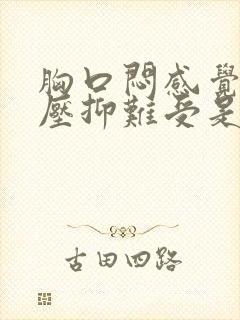 胸口悶感覺
壓抑難受是
古田四路